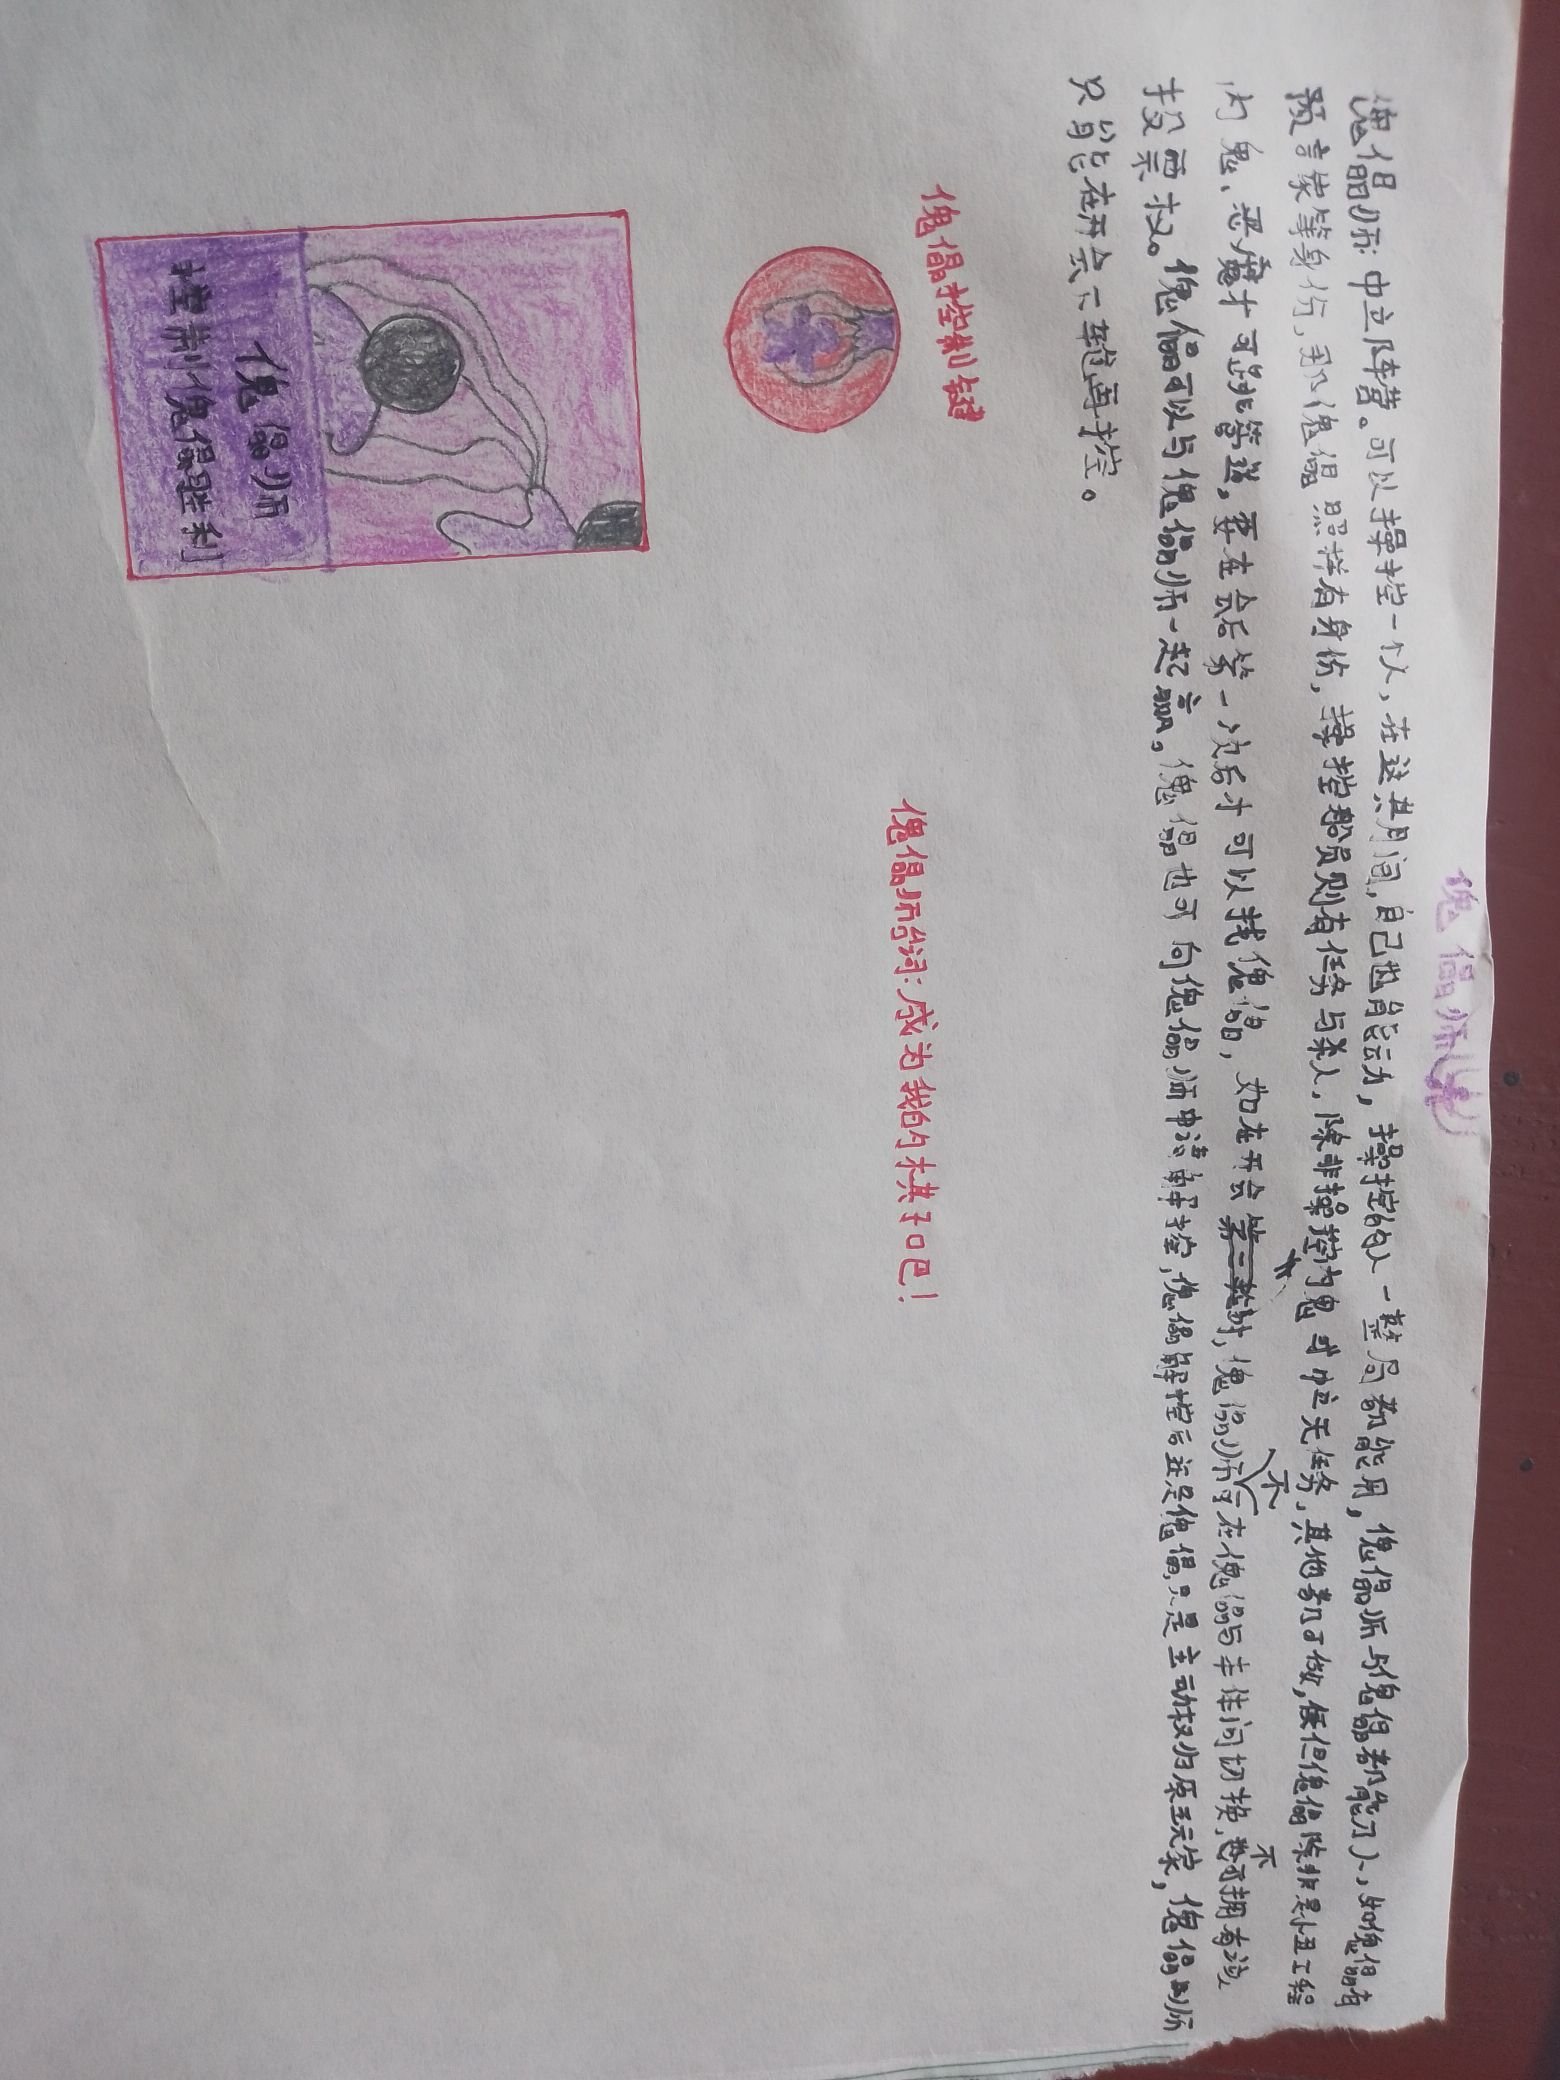 傀儡师
傀儡师：中立阵营。可以操控一个人，在这其间，自己也能动，操控的人一整局都能用，傀儡师与傀儡都能刀人，如傀儡有
预言家等身份，那傀儡照样有身份，操控船员则有任务与杀人，除非操控内鬼或中立无任务，其他都可做，但傀儡除非是小丑工程
内鬼、恶魔才可能管道，要在会后第一人货后才可以找傀儡，如在开会时，傀儡师不可在傀儡与本体间切换，也不可拥有该
投票权。傀儡可以与傀儡师一起赢。傀儡也可向傀儡师申请解控，傀儡解控后还是傀儡，只是主动权归原玩家，傀儡师
只能在开会下一轮再控。
傀儡控制键
傀儡师台词：成为我的棋子吧！
傀儡师
控制傀儡胜利